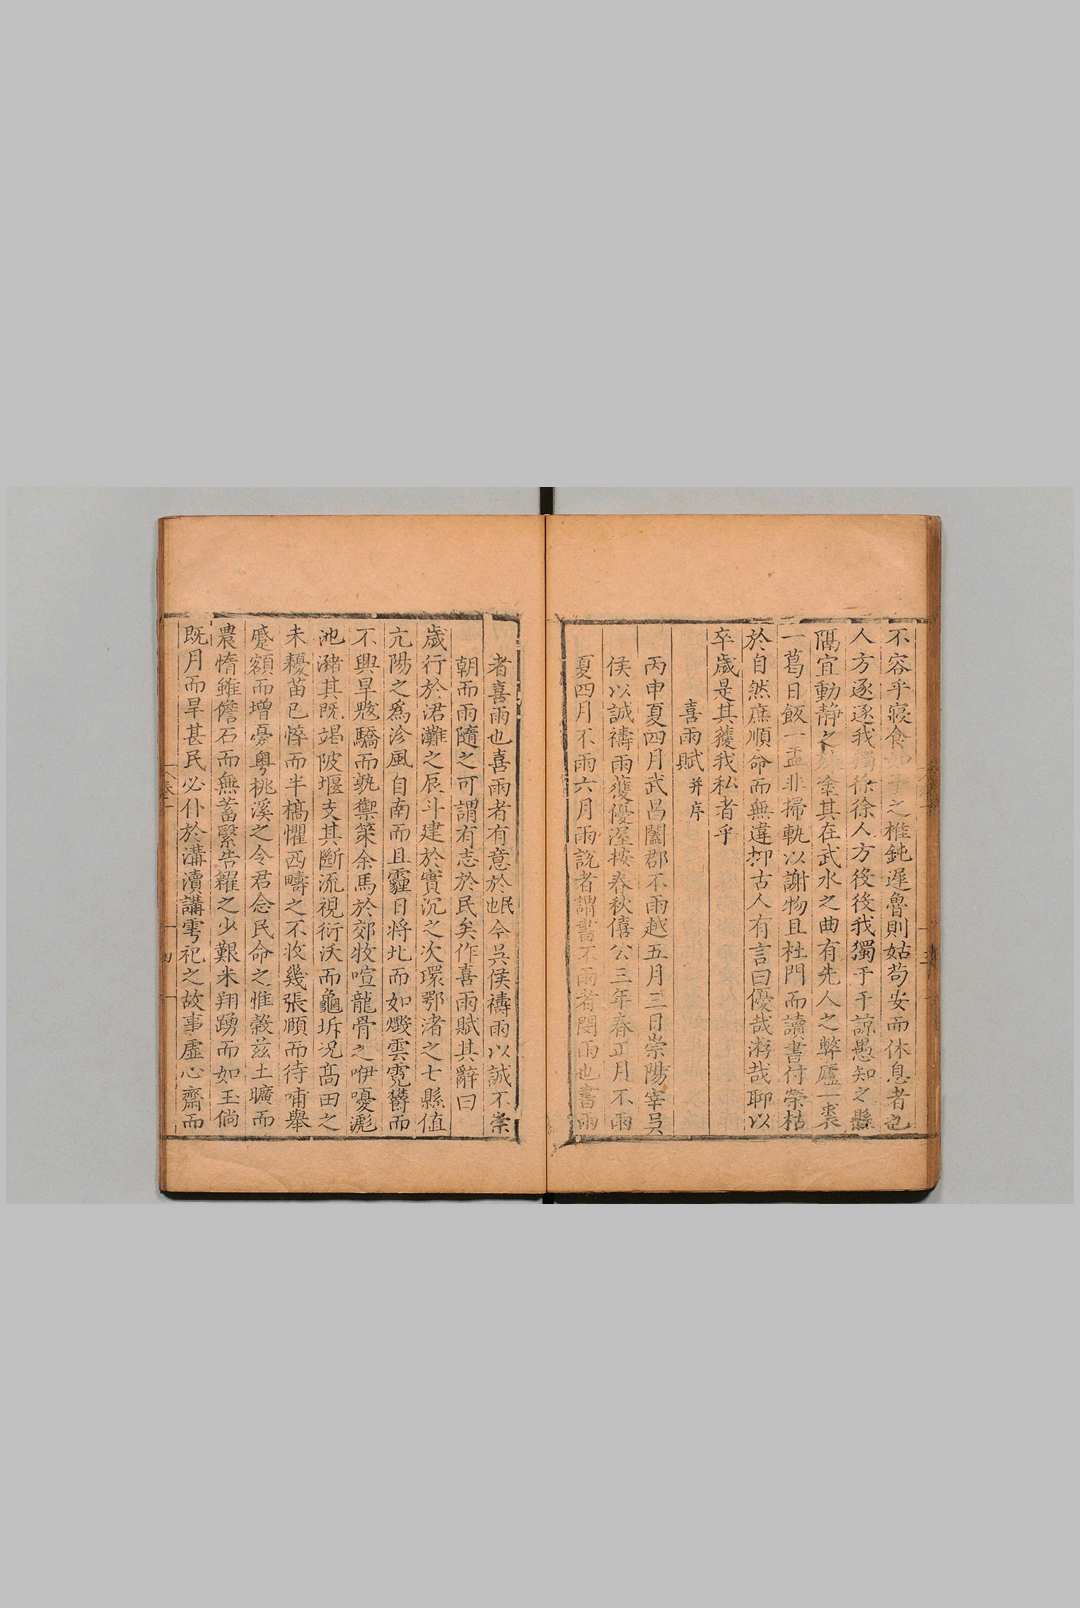 不容乎寢食如予之椎鈍遲魯則姑苟安而休息者也
人方逐逐我獨徐徐人方役役我獨于于諒愚知之懸
隅宜動靜之殊塗其在武水之曲有先人之弊廬一裘
一葛日飯一盂非掃軌以謝物且杜門而讀書付榮枯
於自然庶順命而無違抑古人有言曰優哉游哉聊以
卒歲是其獲我私者乎
喜雨賦并序
丙申夏四月武昌闔郡不雨越五月三日崇陽宰吳
侯以誠禱雨獲優渥按春秋僖公三年春正月不雨
夏四月不雨六月雨說者謂書不雨者閔雨也書雨
者喜雨也喜雨者有意於民也今吳侯禱雨以誠不崇
朝而雨隨之可謂有志於民矣作喜雨賦其辭曰
歲行於涒灘之辰斗建於實沉之次環鄂渚之七縣值
亢陽之為沴風自南而且霾日將北而如燬雲霓鬱而
不興旱魃驕而孰禦策余馬於郊牧喧龍骨之咿嚘滮
池瀦其既竭陂堰支其斷流視衍沃而龜坼况高田之
未耰苗已悴而半槁懼西疇之不收幾張頤而待哺舉
蹙額而增憂粵桃溪之令君念民命之惟穀茲土曠而
農惰雖儋石而無蓄繄告糴之少艱米翔踴而如玉倘
既月而旱甚民必仆於溝瀆講雩祀之故事虛心齋而